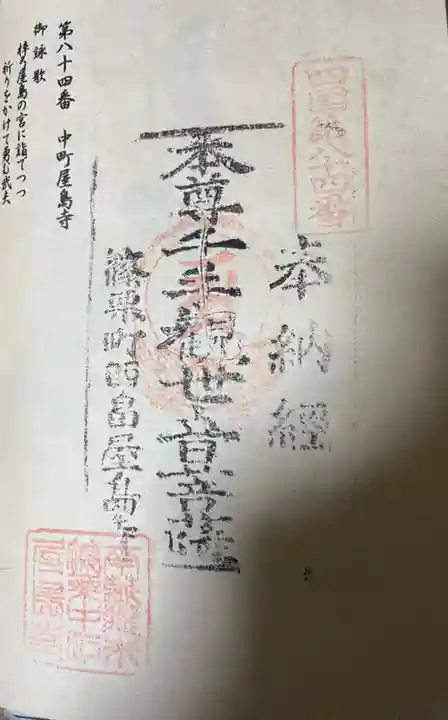 四国第八十四番
奉納経
本尊千手観世音菩薩
篠栗町田
屋島寺
第八十四番　中町屋島寺
御詠歌
梓弓屋島の宮に詣でつつ
祈りをかけて勇む武夫